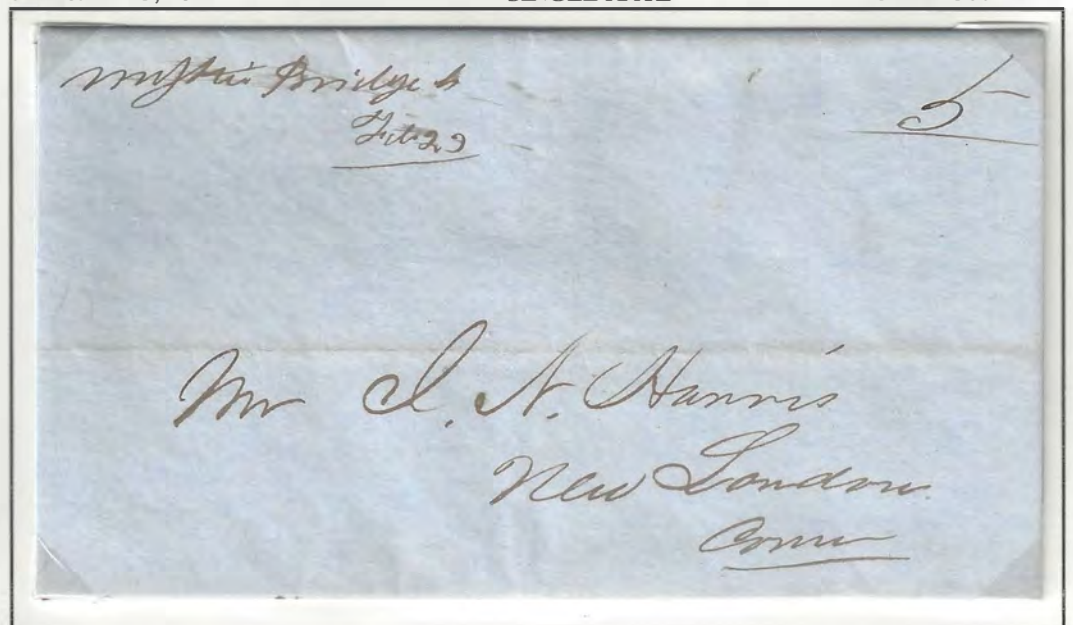 Mystic Bridge
5
Mr I. N. Harris
New London
Conn